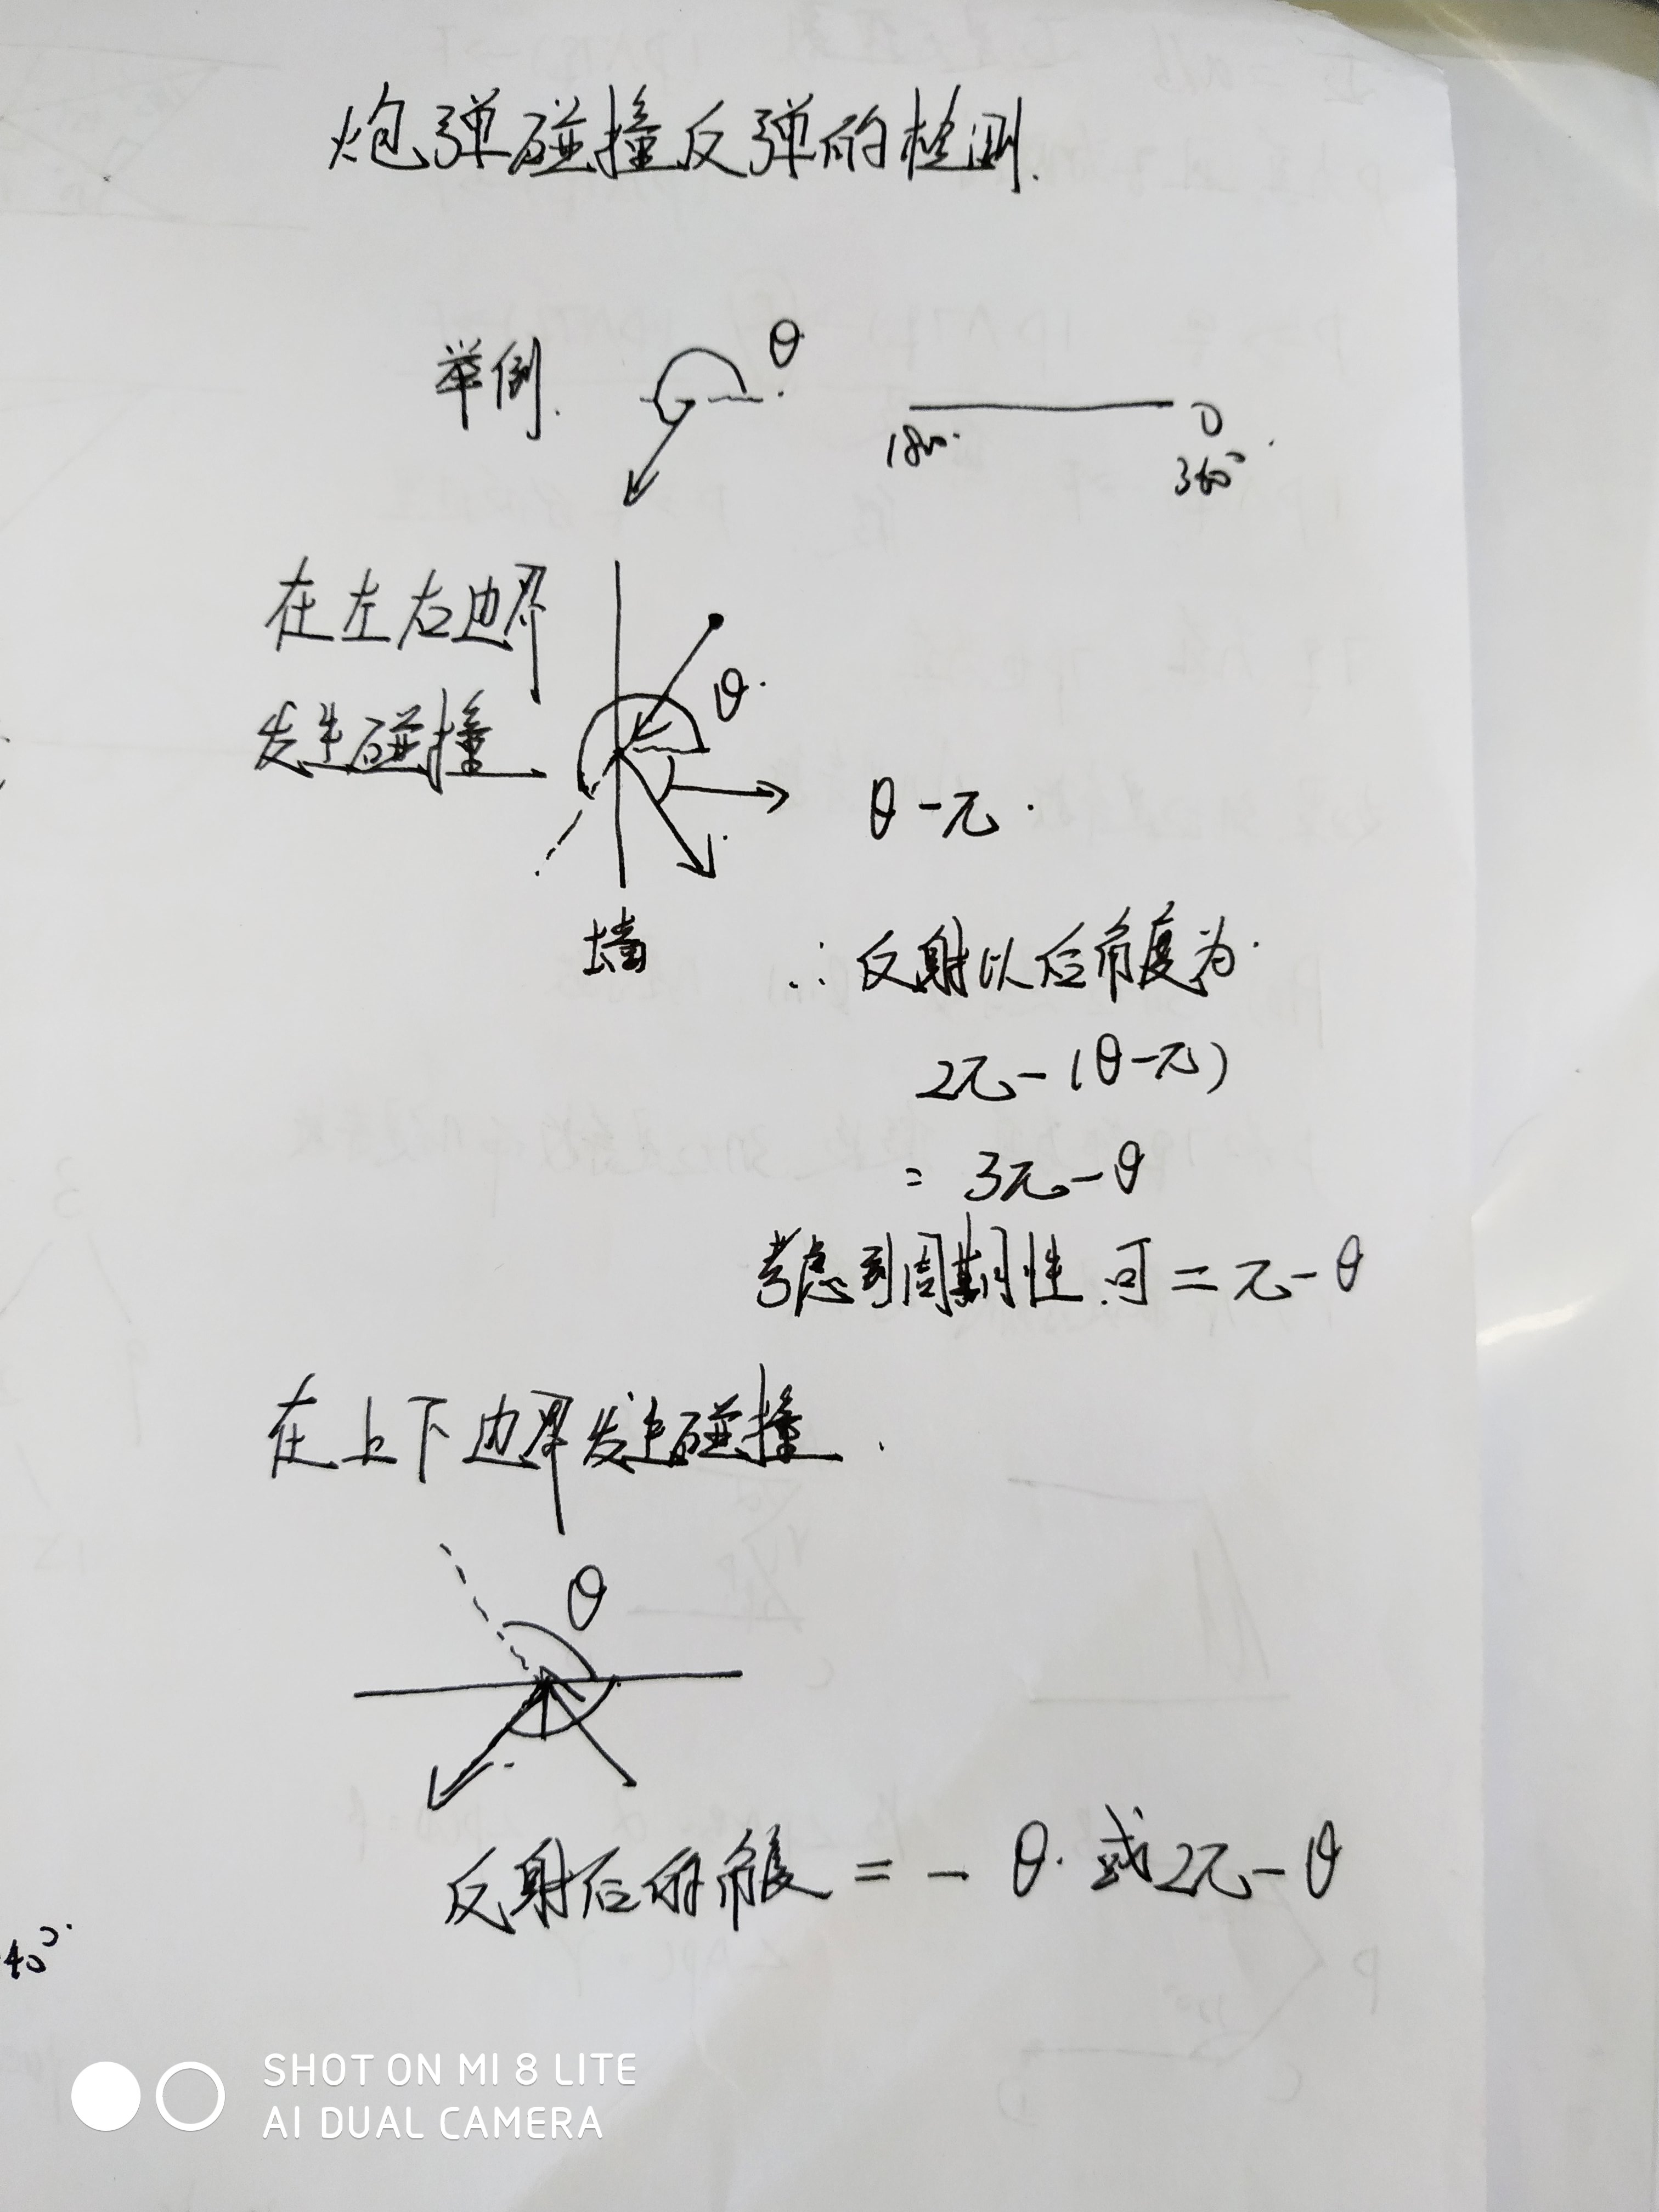 炮弹碰撞反弹的检测.
举例.
θ
180°
0
360°
在左右边界
发生碰撞
θ
θ-π.
墙
∴反射以后角度为
2π-(θ-π)
= 3π-θ
考虑到周期性.可=π-θ
在上下边界发生碰撞.
θ
反射后的角度=-θ.或2π-θ
40°
SHOT ON MI 8 LITE
AI DUAL CAMERA